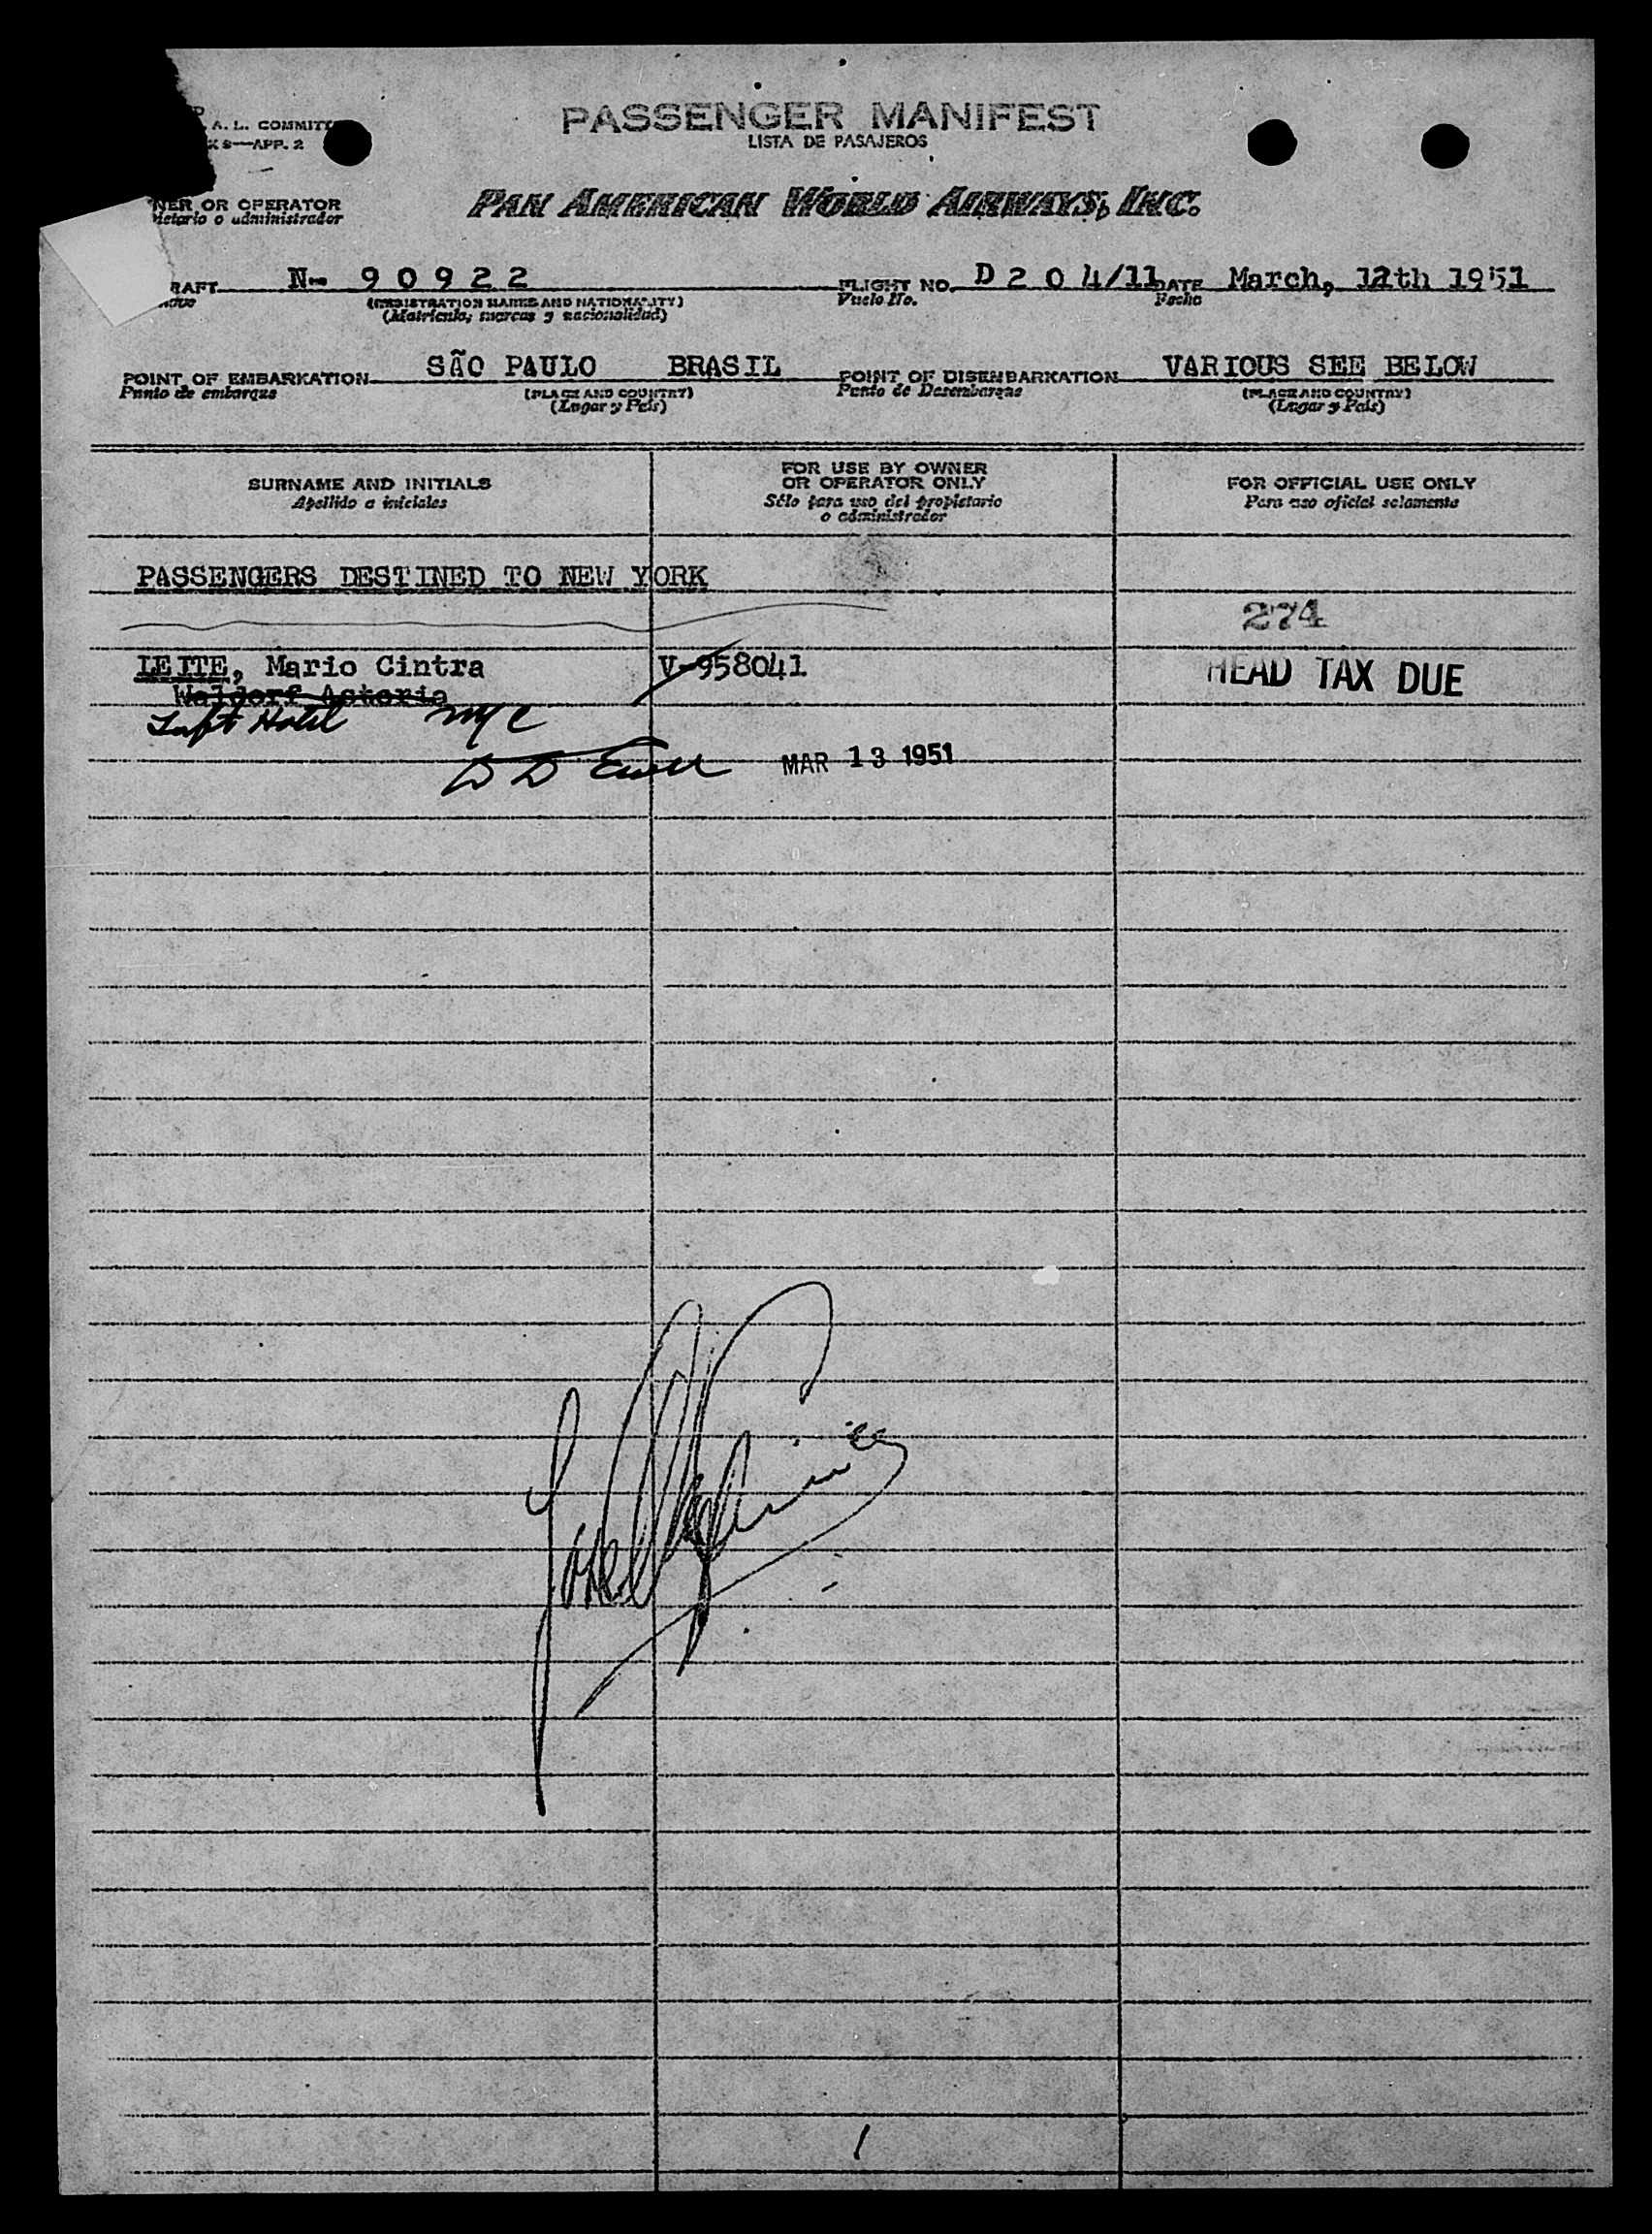 A. L. COMMITT
8—APP. 2
PASSENGER MANIFEST
LISTA DE PASAJEROS
NER OR OPERATOR
ietario o administrador
PAN AMERICAN WORLD AIRWAYS, INC.
RAFT N- 9 0 9 2 2 FLIGHT NO. D 2 0 4/11 DATE March, 12th 1951
(REGISTRATION MARKS AND NATIONALITY) Vuelo No. Fecha
(Matrícula, marcas y nacionalidad)
POINT OF EMBARKATION SÃO PAULO BRASIL POINT OF DISEMBARKATION VARIOUS SEE BELOW
Punto de embarque (PLACE AND COUNTRY) Punto de Desembarque (PLACE AND COUNTRY)
(Lugar y País) (Lugar y País)
SURNAME AND INITIALS
Apellido a iniciales
FOR USE BY OWNER
OR OPERATOR ONLY
Sólo para uso del propietario
o administrador
FOR OFFICIAL USE ONLY
Para uso oficial solamente
PASSENGERS DESTINED TO NEW YORK
274
LEITE, Mario Cintra V-958041 HEAD TAX DUE
Waldorf Astoria
Taft Hotel NYC
MAR 13 1951
1